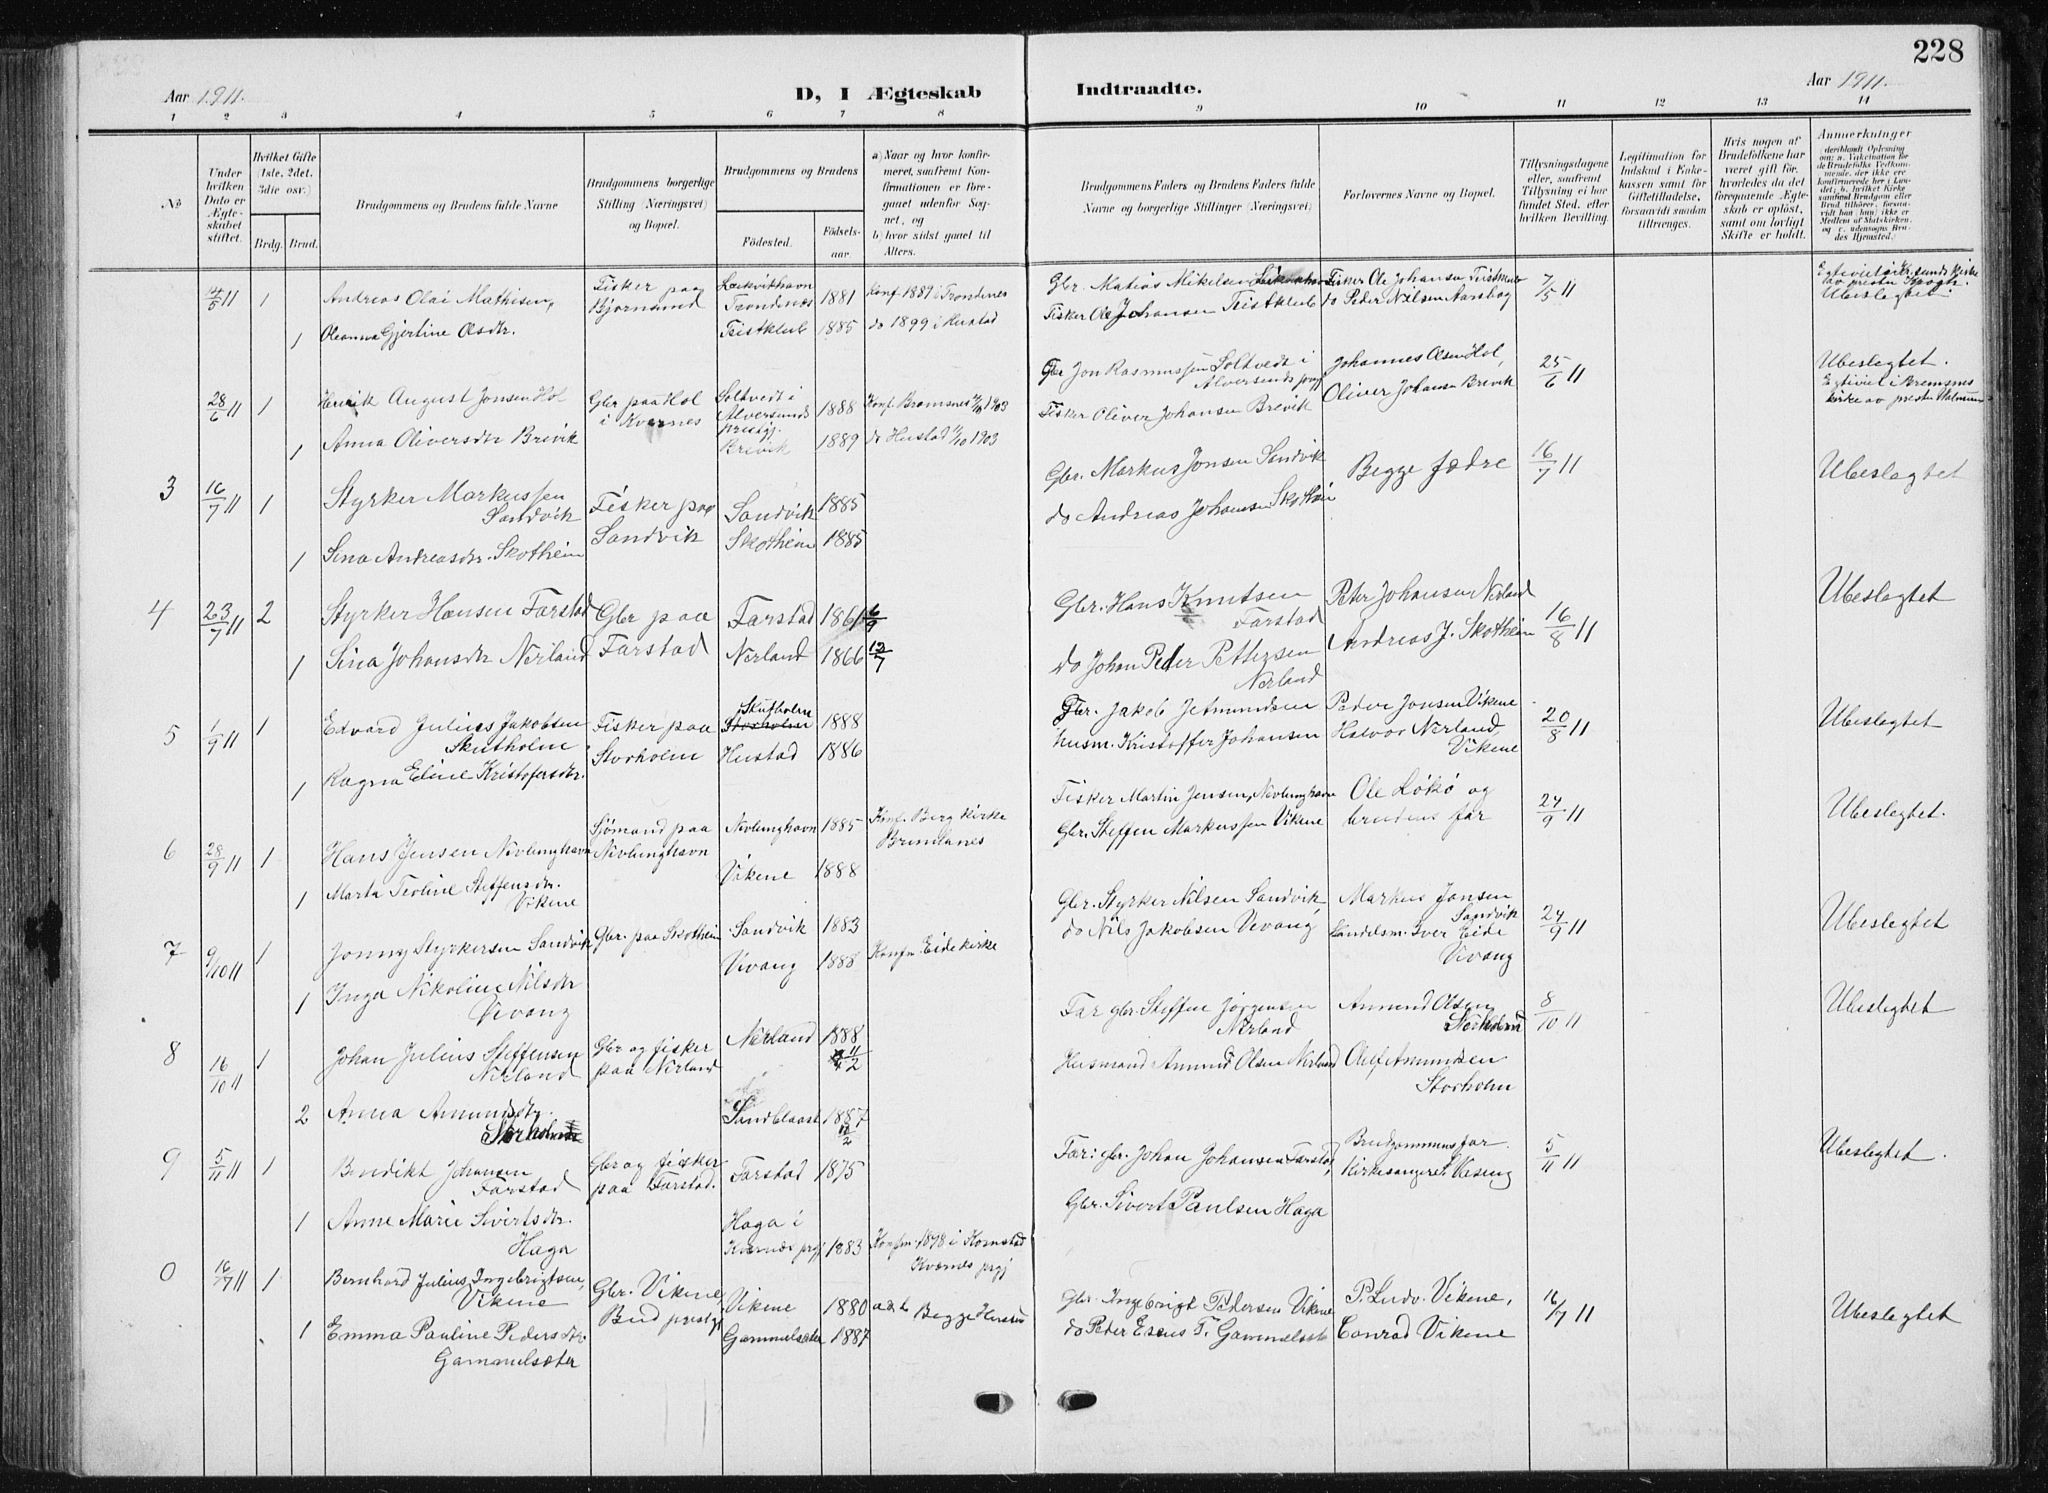 228
Aar 1911.
D, I Ægteskab
Indtraadte.
Aar 1911.
1 2 3 4 5 6 7 8 9 10 11 12 13 14
No
Under hvilken Dato er Ægteskabet stiftet.
Hvilket Gifte (1ste, 2det, 3die osv.)
Brdg. Brud.
Brudgommens og Brudens fulde Navne
Brudgommens borgerlige Stilling (Næringsvei) og Bopæl.
Brudgommens og Brudens
Födested. Födselsaar.
a) Naar og hvor konfirmeret, saafremt Konfirmationen er foregaaet udenfor Sognet, og
b) hvor sidst gaaet til Alters.
Brudgommens Faders og Brudens Faders fulde Navne og borgerlige Stillinger (Næringsvei).
Forlovernes Navne og Bopæl.
Tillysningsdagene eller, saafremt Tillysning ei har fundet Sted, efter hvilken Bevilling.
Legitimation for Indskud i Enkekassen samt for Giftetilladelse, forsaavidt saadan tiltrænges.
Hvis nogen af Brudefolkene har været gift før, hvorledes da det foregaaende Ægteskab er opløst, samt om lovligt Skifte er holdt.
Anmerkninger
14/5 11 1 Andreas Olai Mathisen, Fisker paa Bjørnsund Trondenes 1881 Konf. 1889 i Trondenes
Gbr. Matias Mikelsen Fisker Ole Johansen 7/5 11 Ubeslegtet
1 Oleanna Gjertine Olsdtr. Teistklub 1885 do 1899 i Hustad
Fisker Ole Johansen Teistklub do Peder Nilsen
28/6 11 1 Henrik August Jonsen Hol Gbr paa Hol i Kvernes Soltvedt i Alversunds prestgj. 1888 Konf. Bremsnes 1903
Gbr Jon Rasmussen Soltvedt i Alversunds prgj Johannes Olsen Hol, 25/6 11 Ubeslegtet.
Egtviet i Bremsnes kirke av presten
1 Anna Oliversdtr Brevik Brevik 1889 do Hustad 11/10 1903
Fisker Oliver Johansen Brevik Oliver Johansen Brevik
3 16/7 11 1 Styrker Markussen Sandvik Fisker paa Sandvik Sandvik 1885
Gbr. Markus Jonsen Sandvik Begge fædre 16/7 11 Ubeslegtet
1 Sina Andreasdtr. Skotheim Skotheim 1885
do Andreas Johansen Skotheim
4 23/7 11 2 Styrker Hansen Farstad Gbr paa Farstad Farstad 1861 6/9
Gbr. Hans Knutsen Farstad Peter Johansen Nerland 16/8 11 Ubeslegtet
1 Sina Johansdtr Nerland Nerland 1866 12/7
do Johan Peder Pettersen Nerland Andreas J. Skotheim
5 1/9 11 1 Edvard Julius Jakobsen Skutholm Fisker paa Storholm Skutholm Storholm 1888
Gbr. Jakob Jetmundsen Peder Jonsen Vikene 20/8 11 Ubeslegtet
1 Ragna Eline Kristofersdtr. Hustad 1886
husm. Kristoffer Johansen Halvor Nerland, Vikene
6 28/9 11 1 Hans Jensen Nevlunghavn Sjømand paa Nevlunghavn Nevlunghavn 1885 Konf. Berg kirke Brunlanes
Fisker Martin Jensen, Nevlunghavn Ole Løkø og brudens far 24/9 11 Ubeslegtet.
1 Marta Teoline Steffensdtr. Vikene Vikene 1888
Gbr. Steffen Markussen Vikene
7 9/10 11 1 Jonny Styrkersen Sandvik Gbr. paa Skotheim Sandvik 1883
Gbr. Styrker Nilsen Sandvik, Markus Jonsen Sandvik 24/9 11 Ubeslegtet
1 Inga Nikoline Nilsdtr Vevang Vevang 1888 Konf. Eide kirke
do Nils Jakobsen Vevang Handelsm. Iver Eide Vevang
8 16/10 11 1 Johan Julius Steffensen Nerland Gbr og fisker paa Nerland Nerland 1888 11/2
Far gbr. Steffen Jørgensen Nerland Amund Olsen Storholm 8/10 11 Ubeslegtet
2 Anna Amundsdtr. Storholm Sandblaast 1887
Husmand Amund Olsen Nerland Olef Amundsen Storholm
9 5/11 11 1 Benedikt Johansen Farstad Gbr og fisker paa Farstad. Farstad 1875
Far: gbr. Johan Johansen Farstad, Brudgommens far Kirkesanger 5/11 11 Ubeslegtet.
1 Anne Marie Sivertsdtr. Haga Haga i Kvernes prgj 1883 Konf. 1898 i Kornstad Kvernes prgj
Gbr. Sivert Paulsen Haga
0 16/7 11 1 Bernhard Julius Ingebrigtsen, Vikene Gbr. Vikene, Bud prestgj Vikene 1880 Begge Hustad
Gbr. Ingebrigt Pedersen Vikene P. Ludv. Vikene, 16/7 11 Ubeslegtet
1 Emma Pauline Pedersdtr Gammelsæter Gammelsæter 1887
do Peder Gammelsæt Conrad Vikene